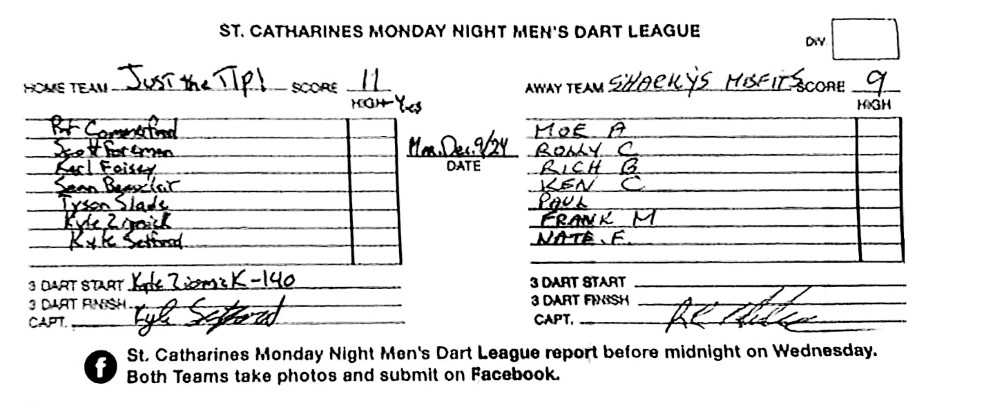 ST. CATHARINES MONDAY NIGHT MEN'S DART LEAGUE
DIV.
HOME TEAM Just the TIp! SCORE 11
HIGH Yes
AWAY TEAM SHACKY'S MISFITS SCORE 9
HIGH
Scott Foreman
Karl Foisey
Sean
Tyson Slade
Kyle Zionick
Kyle Setford
Mon. Dec. 9/24
DATE
MOE A
ROLLY C
RICH B
KEN C
PAUL
FRANK M
NATE. F.
3 DART START Kyle Zionick-140
3 DART FINISH
CAPT. Kyle Setford
3 DART START
3 DART FINISH
CAPT.
St. Catharines Monday Night Men's Dart League report before midnight on Wednesday.
Both Teams take photos and submit on Facebook.